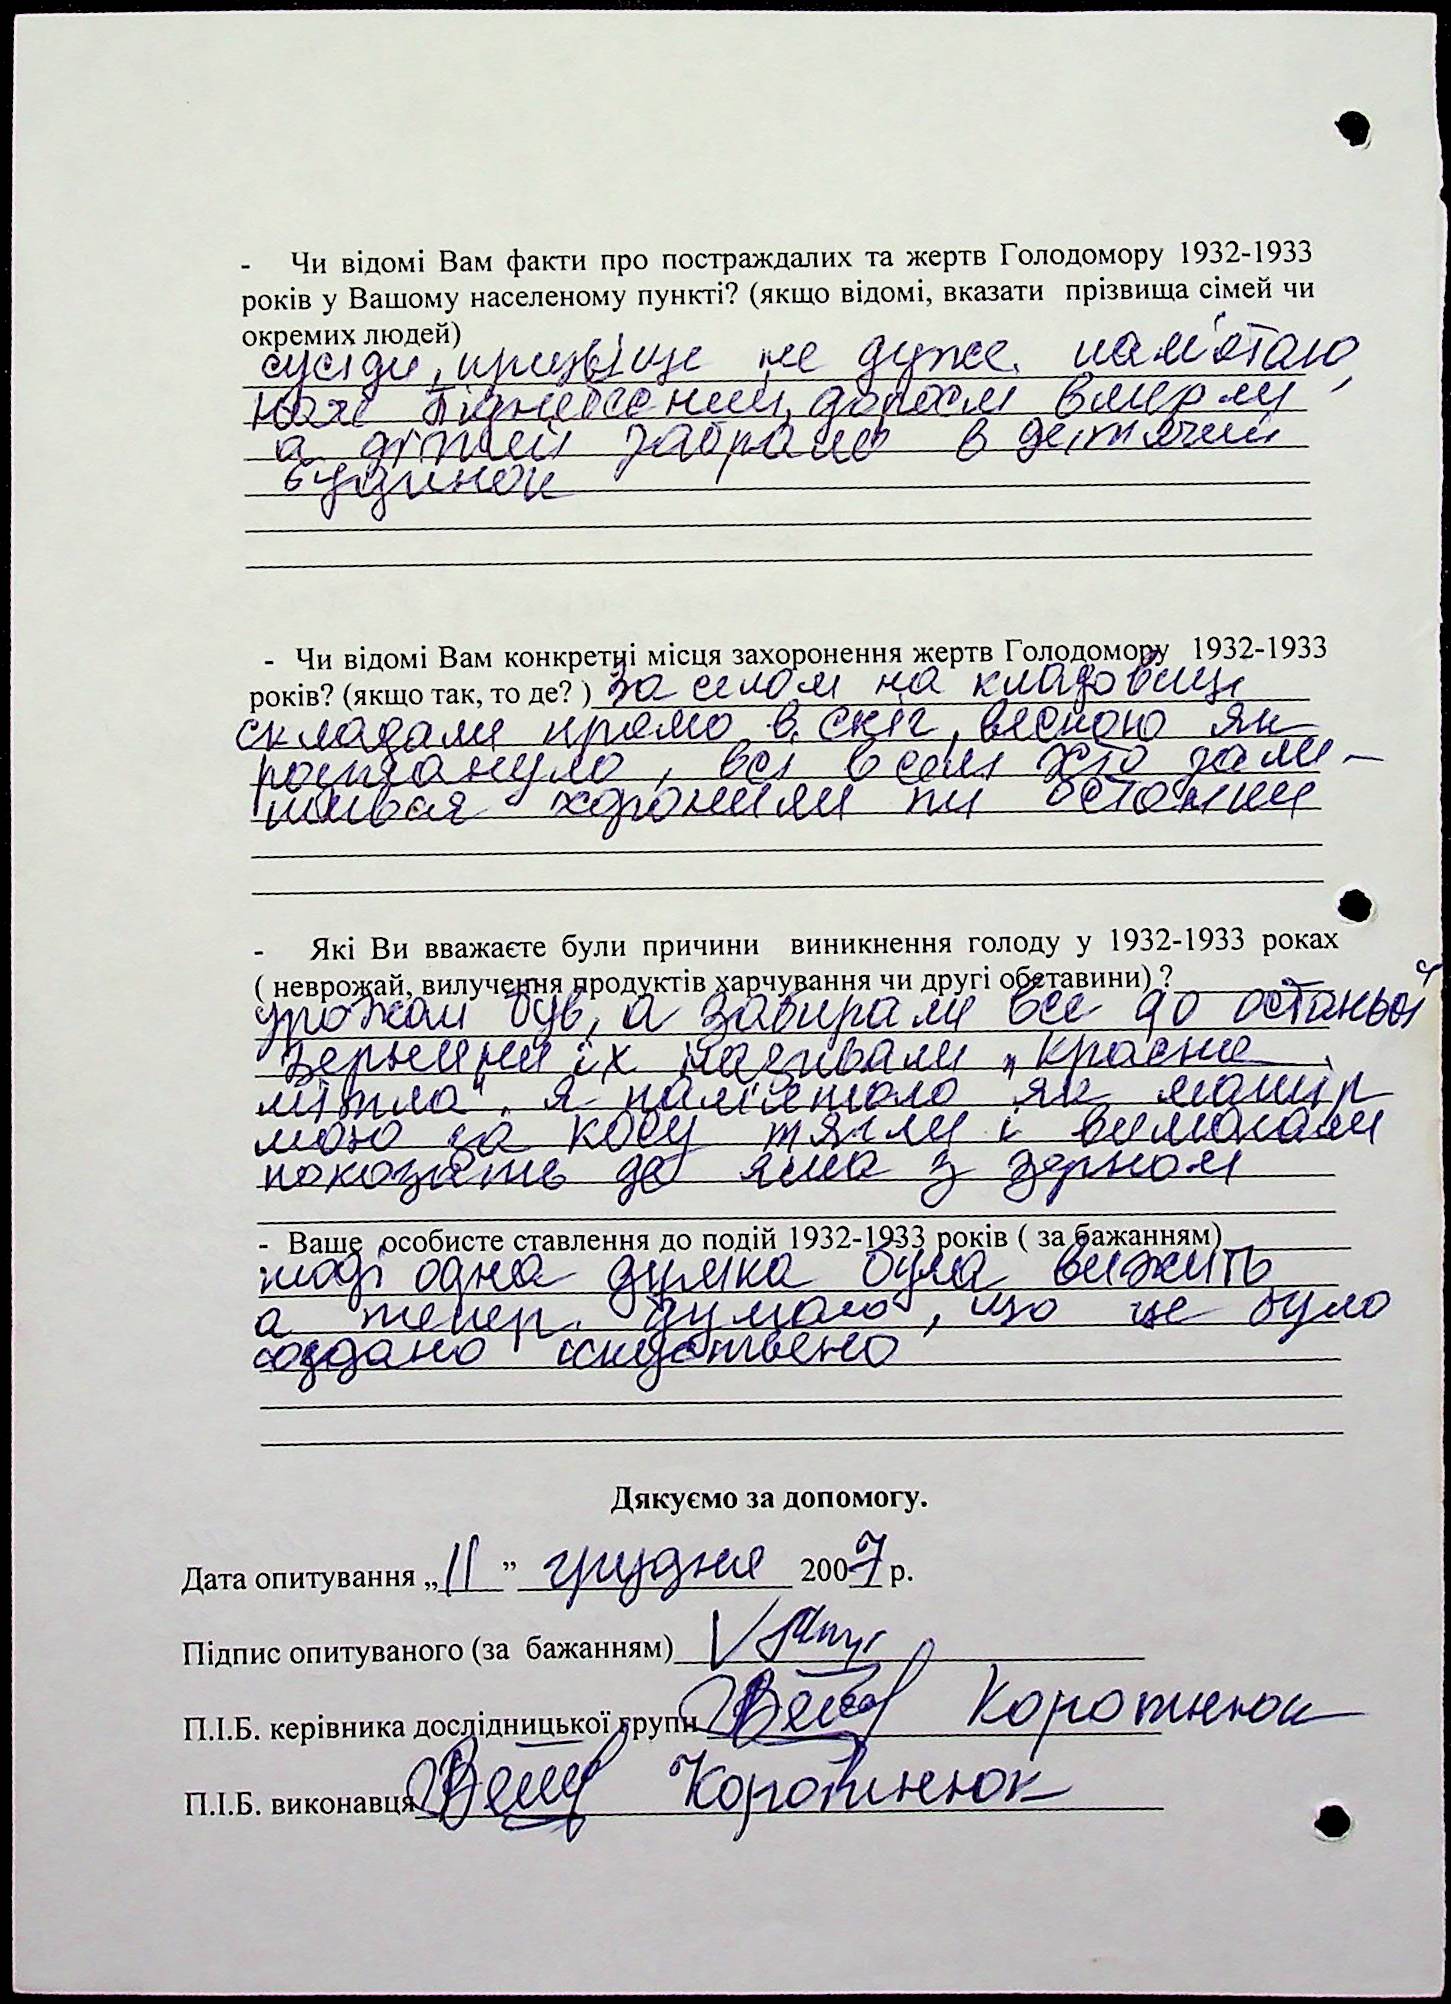 - Чи відомі Вам факти про постраждалих та жертв Голодомору 1932-1933
років у Вашому населеному пункті? (якщо відомі, вказати прізвища сімей чи
окремих людей)
сусіди, прізвіще не дуже пам'ятаю,
дорослі вмерли,
а дітей забрали в детячий
будинок
- Чи відомі Вам конкретні місця захоронення жертв Голодомору 1932-1933
років? (якщо так, то де? ) За селом на кладовищі
складали прямо в сніг, весною як
розтануло, всі в селі хто зали-
шився хоронили ці останки
- Які Ви вважаєте були причини виникнення голоду у 1932-1933 роках
( неврожай, вилучення продуктів харчування чи другі обставини) ?
урожай був, а забирали все до останьої
зернини їх називали „красна
мітла". я пам'ятаю як матір
мою за косу тягли і вимагали
показать де яма з зерном
- Ваше особисте ставлення до подій 1932-1933 років ( за бажанням)
тоді одна думка була вижить
а тепер думаю, що це було
создано искуствено
Дякуємо за допомогу.
Дата опитування „11” грудня 2007 р.
Підпис опитуваного (за бажанням)
П.І.Б. керівника дослідницької групи Коротнюк
П.І.Б. виконавця Коротнюк